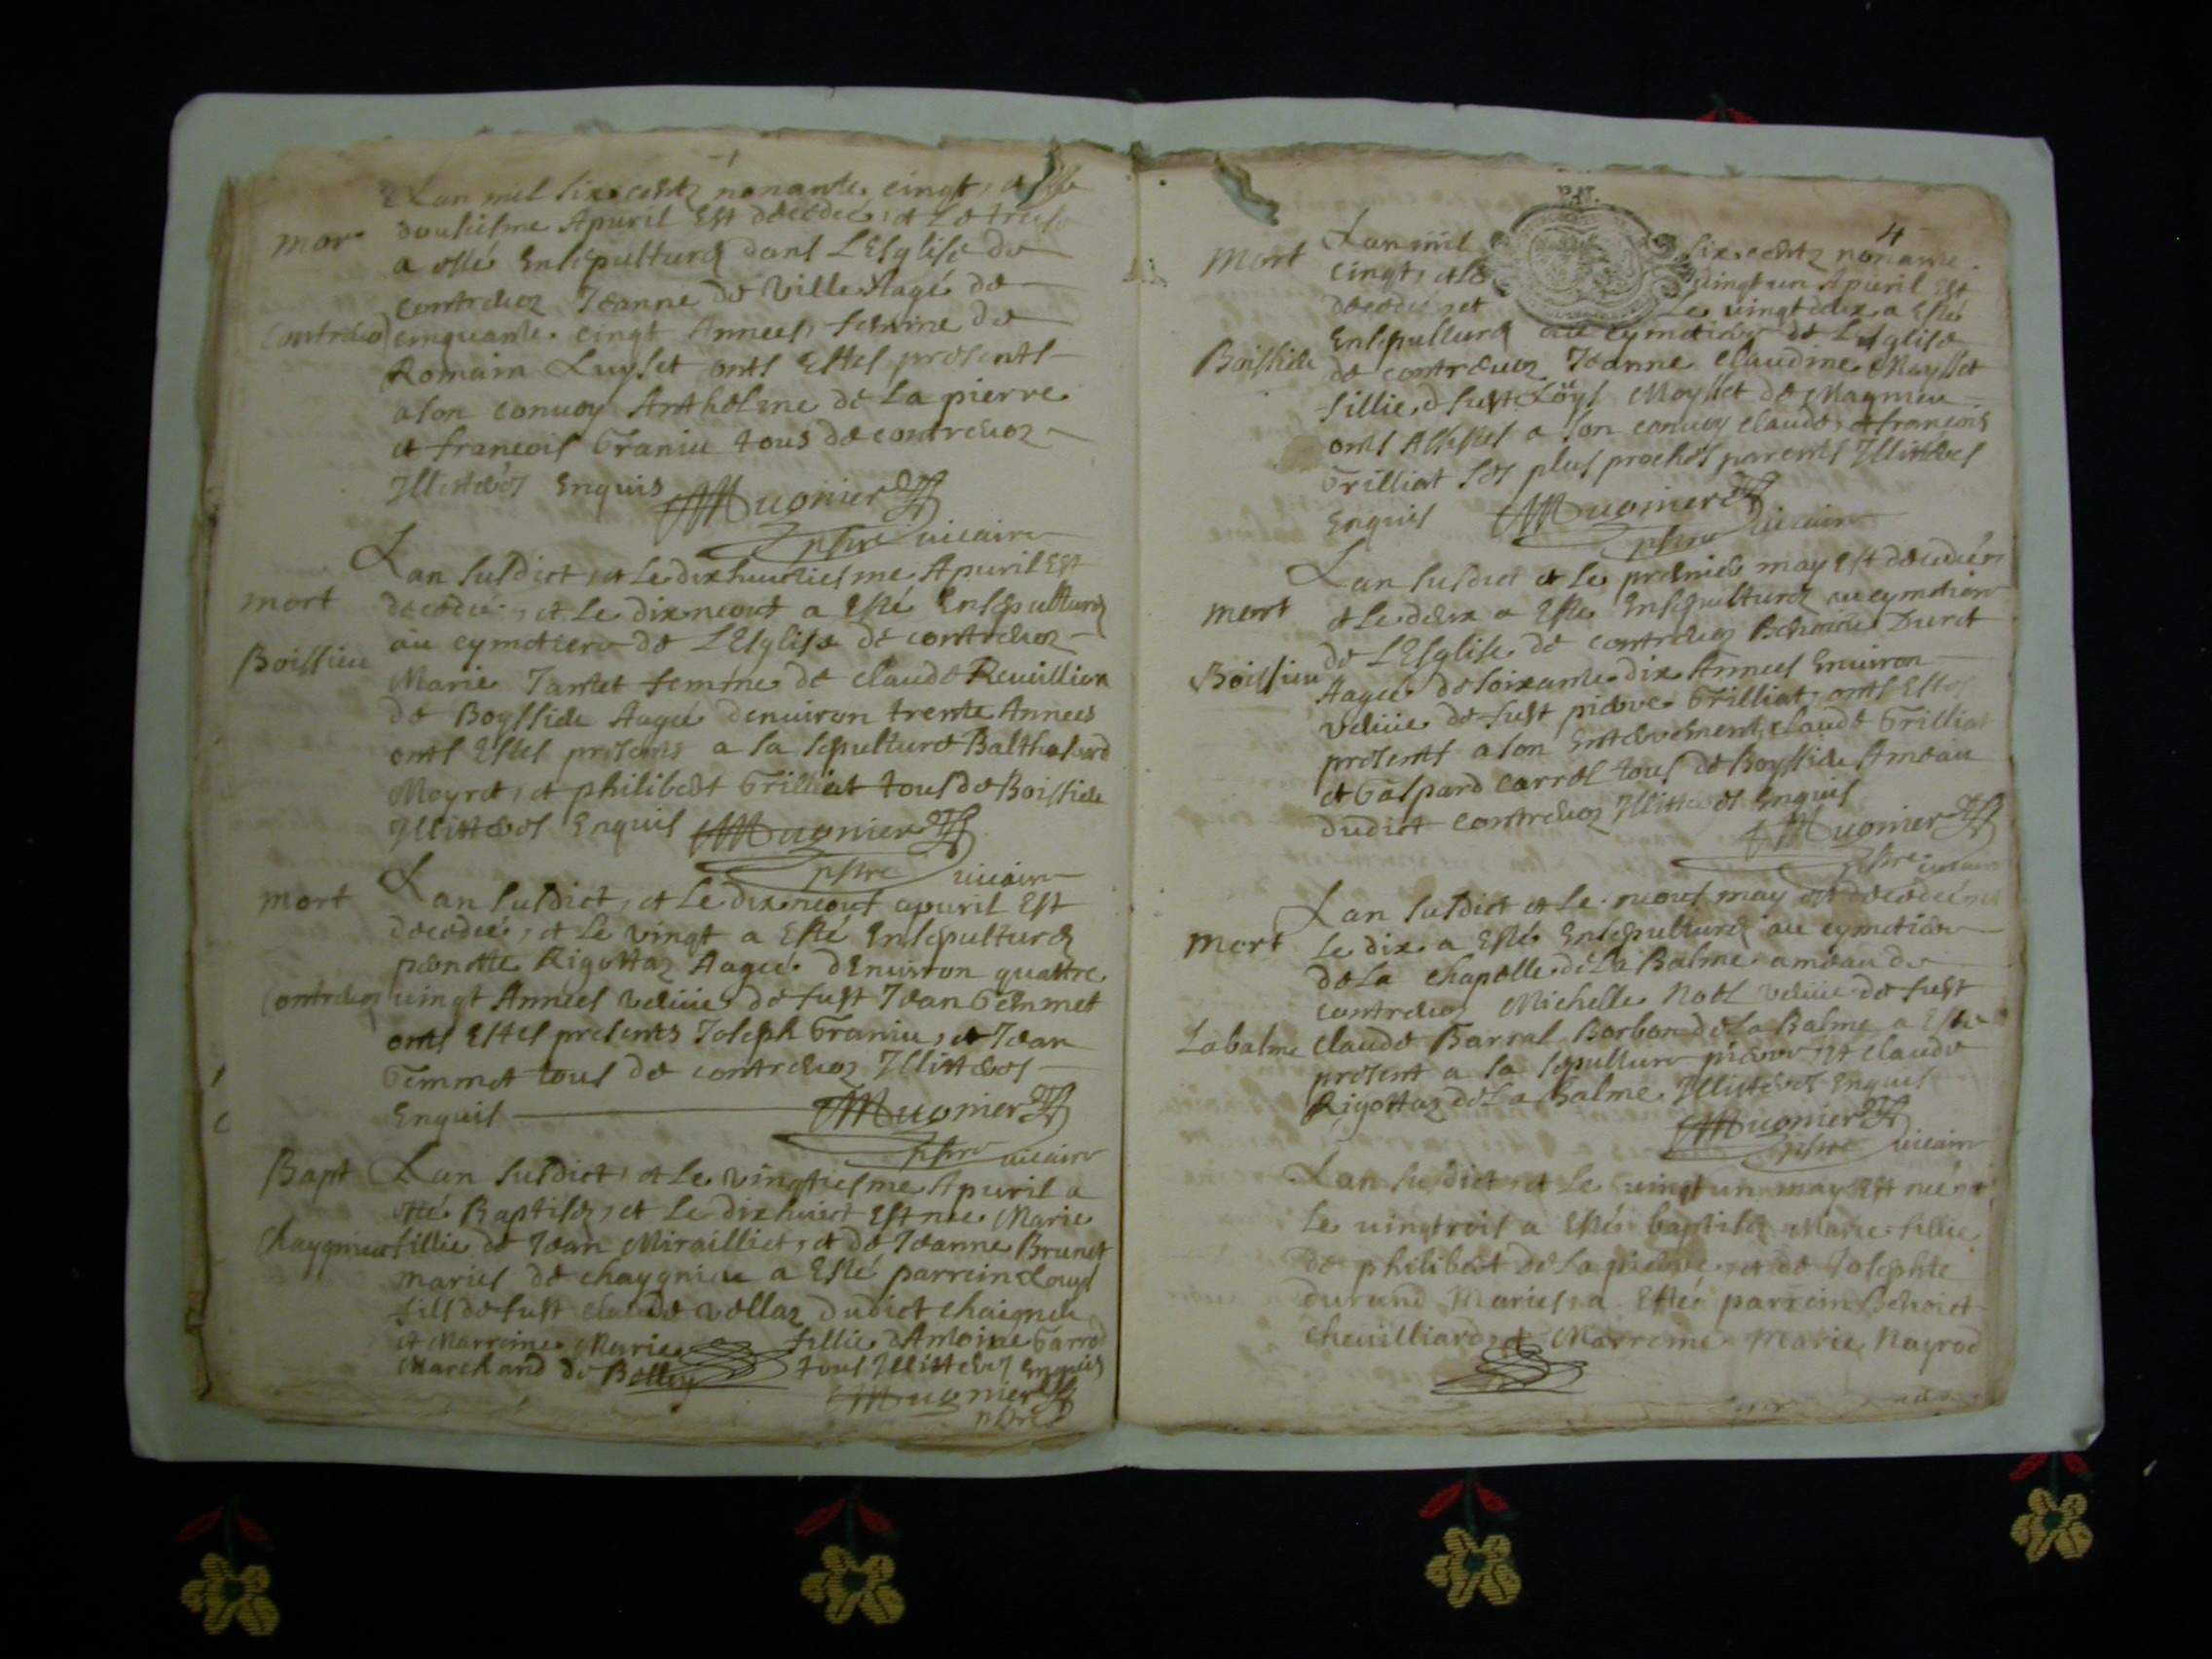 Lan mil six cents nonante cingt, et le
mort
dousiesme Apuril Est décédée, et Le treise
a esté Ensepulturéz dans L'Esglise de
Contreuoz Jeanne de Ville Aagé de
Contreuoz
cinquante cingt Annees, femme de
Romain Luyset onts Estes présents
a son conuoy Anthelme de La pierre
et francois Graniu tous de contreuoz
Illitterés Enquis MMugnier
pbre uicaire
Lan susdict, et Le dixhuictiesme Apuril Est
mort
décédée, et Le dixneouf a Esté Ensepulturéz
au cymetiere de L'Esglise de contreuoz
Boissieu
Marie Jantet femme de claude Reuillion
de Boyssieu Aagée denuiron trente Annees
onts Estes présents a la sepulture Balthesard
Moyret, et philibert Trilliat tous de Boissieu
Illitterés Enquis MMugnier
pbre uicaire
mort
Lan susdict, et Le dixneouf apuril Est
décédée, et Le vingt a Esté Ensepulturéz
pernette Rigottaz Aagée dEnuiron quattre
Contreuoz
uingt Annees veliue de fust Jean Gemmet
onts Estes présents Joseph Graniu, et Jean
Gemmet tous de contreuoz Illitterés
Enquis MMugnier
pbre uicaire
Bapt
Lan susdict, et Le vingtiesme Apuril a
esté Baptiséz, et Le dixhuict Est née Marie
Chaygnieu
fillie de Jean Mirailliet, et de Jeanne Brunet
mariés de chaygnieu a Esté parrein Louys
fils de fust claude vellaz dudict chaigneu
et Marreine Marie fillie dAntoine Garrod
Marchand de Belley tous Illitterés Enquis
MMugnier
pbre
4
mort
Lan mil six cents nonante
cingt, et Le vingt un Apuril Est
décédée, et Le vingt deux a Esté
Ensepulturéz au cymetiere de L'Esglise
Boissieu
de contreuoz Jeanne Claudine Moysset
fillie de fust Loÿs Moysset de Magnieu
onts Assistes a son conuoy claude, et francois
Trilliat ses plus proches parents Illitterés
Enquis MMugnier
pbre uicaire
Lan susdict et Le premier may Est décédée
mort
et Le deux a Esté Ensepulturéz au cymetiere
de L'Esglise de contreuoz Benoite Duret
Boissieu
Aagée de soixante dix Annees Enuiron
veliue de fust pierre Trilliat, onts Estes
présents a son Enterrement, claude Trilliat
et Gaspard carrel tous de Boyssieu Ameau
dudict contreuoz Illitterés Enquis
MMugnier
pbre uicaire
Lan susdict et Le neouf may est décédée, et
mort
Le dix a Esté Ensepulturéz au cymetiere
de La chapelle de La Balme ameau de
contreuoz Michelle Noël veliue de fust
Labalme
claude Barral Borbon de La Balme a Esté
présent a la sepulture pierre, et claude
Rigottaz de La Balme Illitterés Enquis
MMugnier
pbre uicaire
Lan susdict, et Le uingt un may Est née, et
Le uingtrois a Esté baptiséz Marie fillie
de philibert de La pierre, et de Josephte
durand Mariés, a Esté parrein Benoict
cheuilliard, et Marreine Marie Nayrod